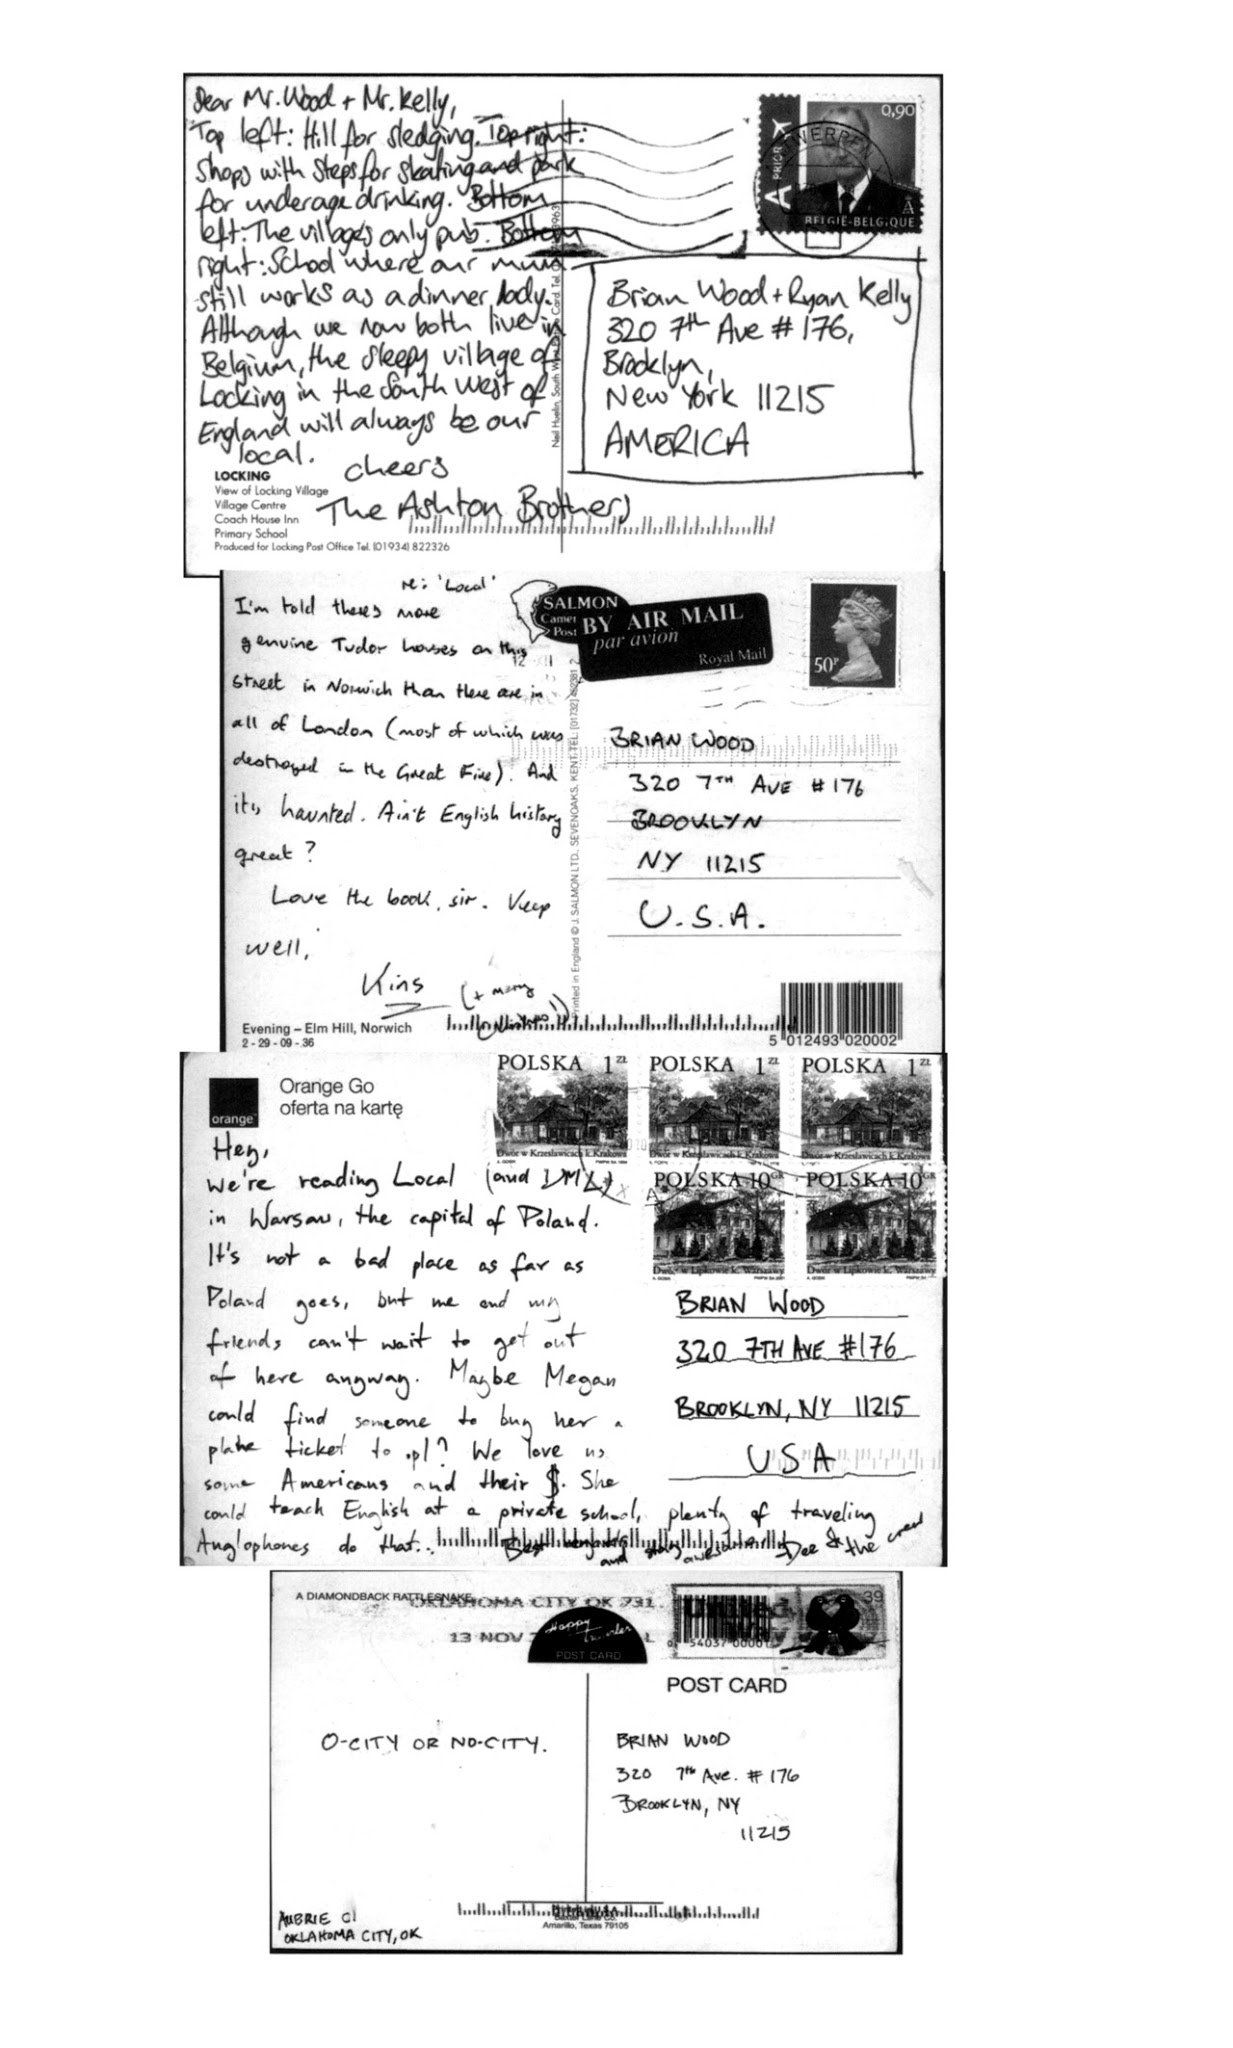 Dear Mr. Wood + Mr. Kelly,
Top left: Hill for sledging. Top right:
Shops with steps for skating and park
for underage drinking. Bottom
left: The villages only pub. Bottom
right: School where our mum
still works as a dinner lady.
Although we now both live in
Belgium, the sleepy village of
Locking in the South West of
England will always be our
local.
cheers
The Ashton Brothers
LOCKING
View of Locking Village
Village Centre
Coach House Inn
Primary School
Produced for Locking Post Office Tel. (01934) 822326
A PRIOR
0,90
BELGIE-BELGIQUE
Brian Wood + Ryan Kelly
320 7th Ave # 176,
Brooklyn,
New York 11215
AMERICA
re: 'Local'
I'm told theres more
genuine Tudor houses on this
street in Norwich than there are in
all of London (most of which was
destroyed in the Great Fire). And
its haunted. Ain't English history
great?
Love the book, sir. Keep
well,
(+ merry
Evening – Elm Hill, Norwich
2 - 29 - 09 - 36
SALMON
Post
BY AIR MAIL
par avion
Royal Mail
50P
Printed in England © J. SALMON LTD., SEVENOAKS, KENT. TEL:
BRIAN WOOD
320 7TH AVE # 176
BROOKLYN
NY 11215
U.S.A.
5 012493 020002
orange
Orange Go
oferta na kartę
POLSKA 1ZŁ
POLSKA 1ZŁ
POLSKA 1ZŁ
Dwór w Krzesławicach k. Krakowa
Dwór w Krzesławicach k. Krakowa
Dwór w Krzesławicach k. Krakowa
POLSKA 10GR
POLSKA 10GR
Dwór w Lipkowie k. Warszawy
Dwór w Lipkowie k. Warszawy
Hey,
We're reading Local (and DMZ)
in Warsaw, the capital of Poland.
It's not a bad place as far as
Poland goes, but me and my
friends can't wait to get out
of here anyway. Maybe Megan
could find someone to buy her a
plane ticket to .pl? We love us
some Americans and their $. She
could teach English at a private school, plenty of traveling
Anglophones do that..
Best
Dee & the crew
BRIAN WOOD
320 7TH AVE #176
BROOKLYN, NY 11215
USA
A DIAMONDBACK RATTLESNAKE
OKLAHOMA CITY OK 731
13 NOV
Happy Traveler
POST CARD
39
54037 00001
POST CARD
O-CITY OR NO-CITY.
BRIAN WOOD
320 7th Ave. # 176
BROOKLYN, NY
11215
AUBRIE
OKLAHOMA CITY, OK
Amarillo, Texas 79105